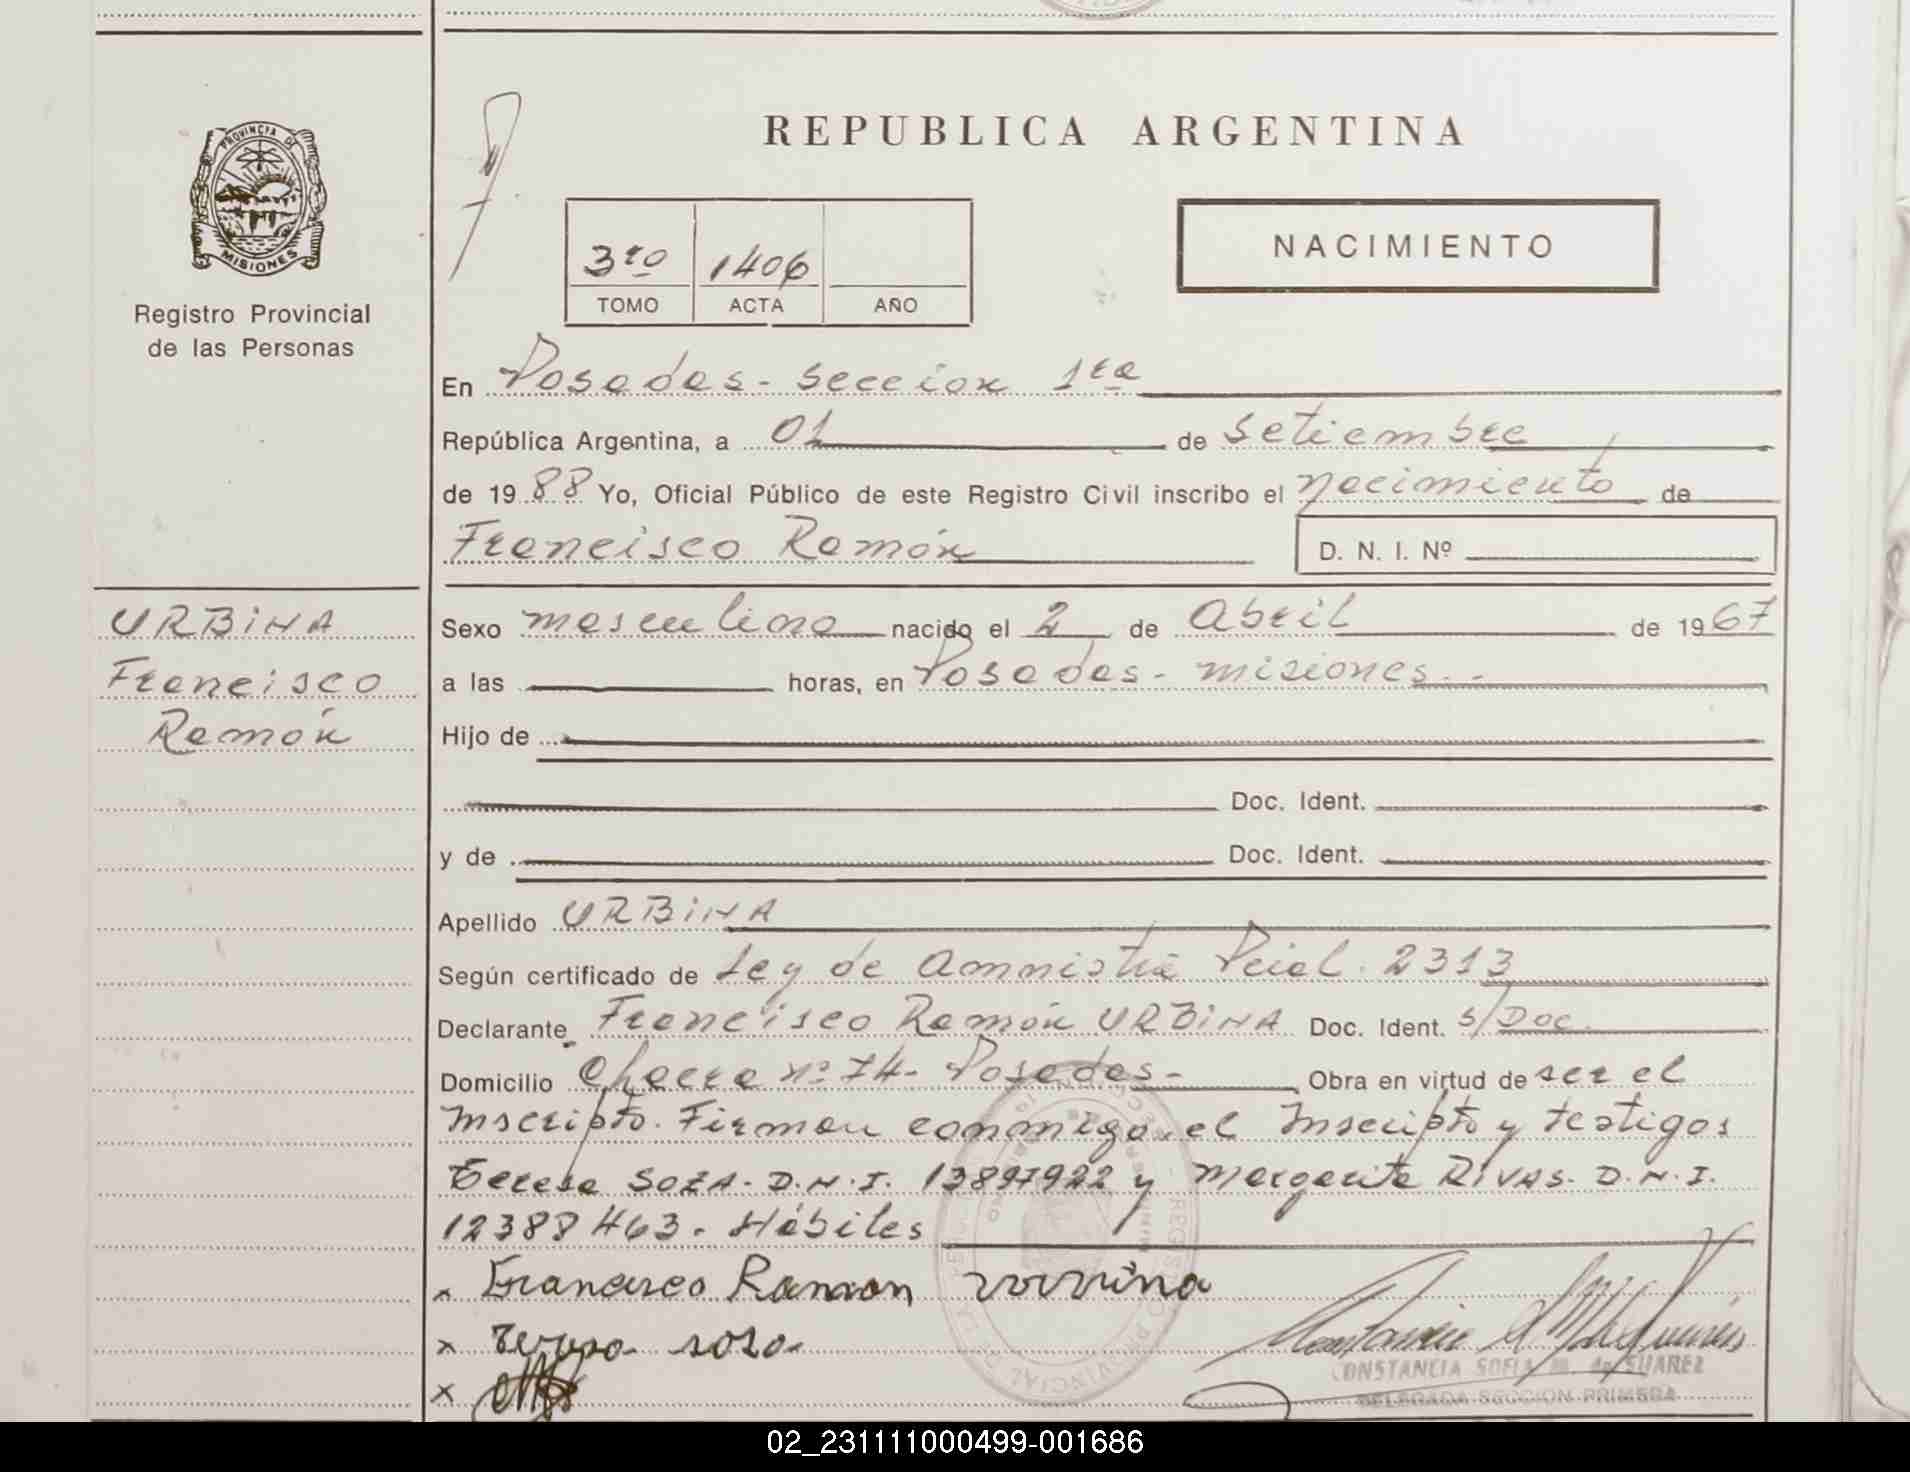 PROVINCIA DE
MISIONES
Registro Provincial
de las Personas
REPUBLICA ARGENTINA
3ro 1406
TOMO ACTA AÑO
NACIMIENTO
En Posadas - Seccion 1ra
República Argentina, a 01 de Setiembre
de 1988 Yo, Oficial Público de este Registro Civil inscribo el nacimiento de
Francisco Ramón
D. N. I. Nº
URBINA
Francisco
Ramón
Sexo masculino nacido el 2 de Abril de 1967
a las horas, en Posadas - misiones
Hijo de
Doc. Ident.
y de Doc. Ident.
Apellido URBINA
Según certificado de Ley de Amnistia Pcial. 2313
Declarante Francisco Ramón URBINA Doc. Ident. S/Doc.
Domicilio Chacra nº 74 - Posadas - Obra en virtud de ser el
Inscripto. Firman conmigo, el Inscripto y testigos
Teresa SOZA - D.N.I. 13897922 y Margarita RIVAS. D.N.I.
12388463. Hábiles
x Francisco Ramon
x
x
CONSTANCIA SOFIA M. de SUAREZ
DELEGADA SECCION PRIMERA
02_231111000499-001686